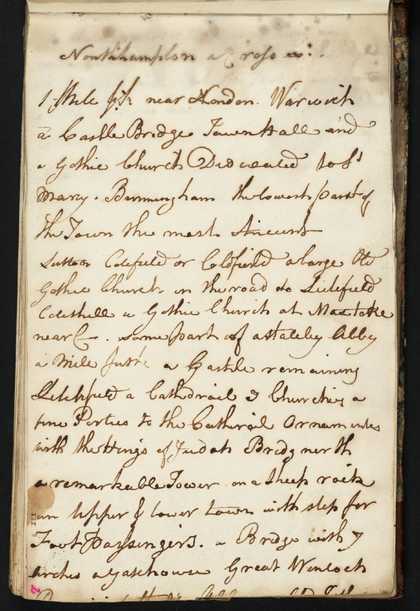 Northhampton a Cross
1 Mile near London. Warwick
a Castle Bridge Town Hall and
a Gothic Church Dedicated to St
Mary. Burmingham the lowest part of
the Town the most Ancient
Sutton Colefield or Coldfield a large Old
Gothic Church in the road to Lichfield
Coleshill a Gothic Church at
near some part of a stately Abby
a Mile a Castle remaining
Litchfield a Cathedrail 3 Churches a
fine Portico to the Cathedral Ornamented
with the Kings of Judah Bridgnorth
a remarkable Tower on a Steep rock
an Upper & lower town with step for
Foot Passingers. a Bridge with 7
arches a gatehouse Great Winlock